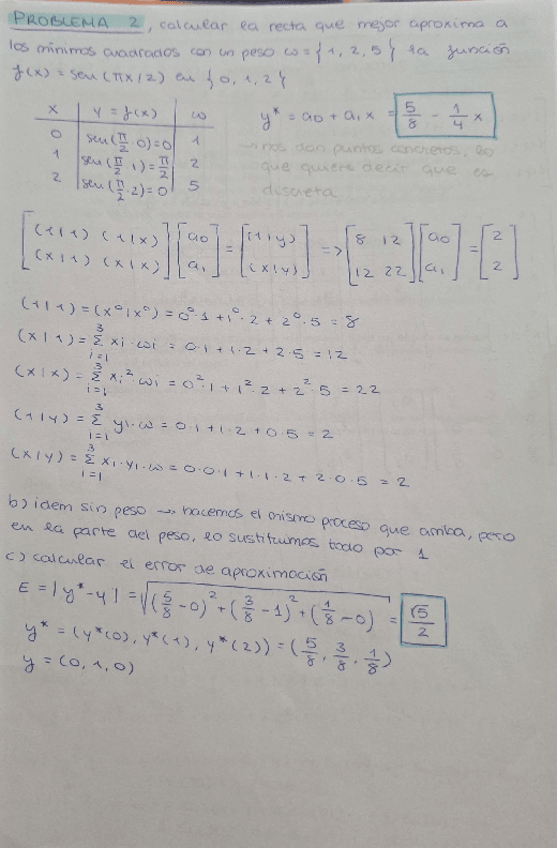 PROBLEMA 2, calcular la recta que mejor aproxima a
los mínimos cuadrados con un peso ω = {1, 2, 5} la función
f(x) = sen(πx/2) en {0, 1, 2}
x | y = f(x) | ω
0 | sen(π/2 · 0) = 0 | 1
1 | sen(π/2 · 1) = π/2 | 2
2 | sen(π/2 · 2) = 0 | 5
y* = a0 + a1x = 5/8 - 1/4 x
→ nos dan puntos concretos, lo
que quiere decir que es
discreta
[(1|1) (1|x); (x|1) (x|x)] [a0; a1] = [(1|y); (x|y)] => [8 12; 12 22] [a0; a1] = [2; 2]
(1|1) = (x⁰|x⁰) = 0⁰·1 + 1⁰·2 + 2⁰·5 = 8
(x|1) = Σ(i=1→3) xi·ωi = 0·1 + 1·2 + 2·5 = 12
(x|x) = Σ(i=1→3) xi²·ωi = 0²·1 + 1²·2 + 2²·5 = 22
(1|y) = Σ(i=1→3) yi·ω = 0·1 + 1·2 + 0·5 = 2
(x|y) = Σ(i=1→3) xi·yi·ω = 0·0·1 + 1·1·2 + 2·0·5 = 2
b) idem sin peso → hacemos el mismo proceso que arriba, pero
en la parte del peso, lo sustituimos todo por 1
c) calcular el error de aproximación
E = |y* - y| = √((5/8 - 0)² + (3/8 - 1)² + (1/8 - 0)²) = √5/2
y* = (y*(0), y*(1), y*(2)) = (5/8, 3/8, 1/8)
y = (0, 1, 0)